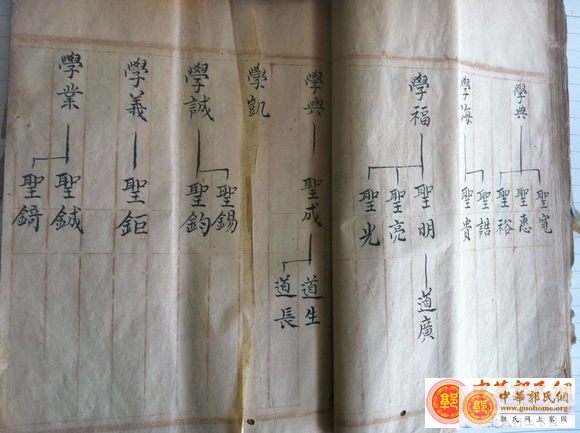 學典
聖寬
聖惠
聖裕
學海
聖誥
聖貴
學福
聖明
聖亮
聖光
道廣
學興
聖成
道生
道長
學凱
學誠
聖錫
聖鈞
學義
聖鉅
學業
聖鋮
聖錡
中華郭氏網
www.guohome.org
郭氏網上家園